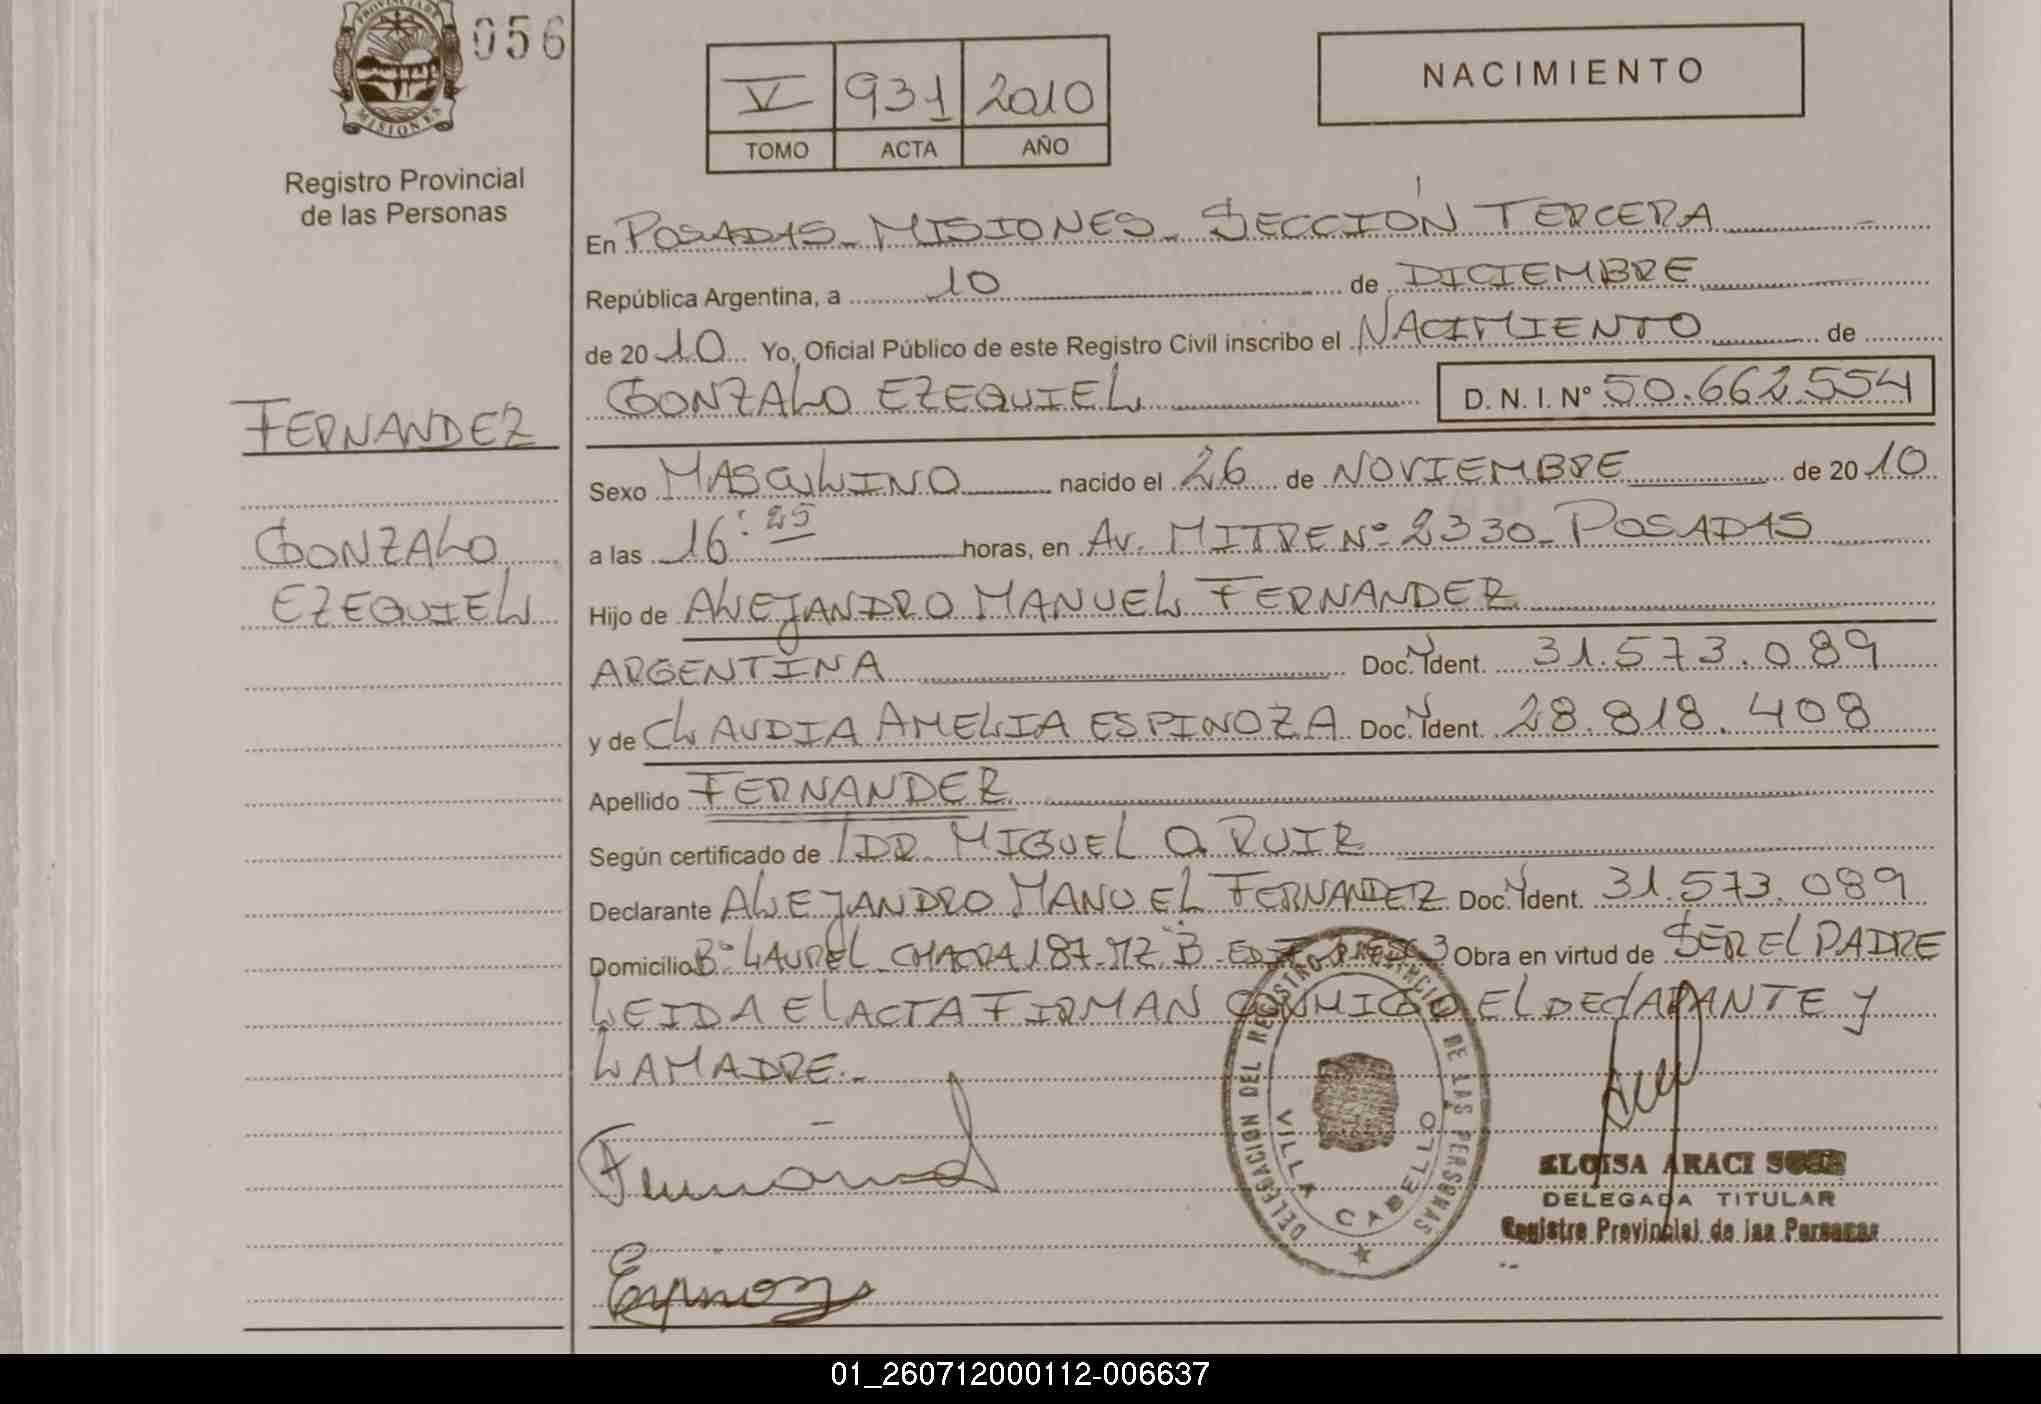 PROVINCIA DE
MISIONES
056
Registro Provincial
de las Personas
V 931 2010
TOMO ACTA AÑO
NACIMIENTO
En POSADAS - MISIONES - SECCIÓN TERCERA
República Argentina, a 10 de DICIEMBRE
de 2010 Yo, Oficial Público de este Registro Civil inscribo el NACIMIENTO de
GONZALO EZEQUIEL D. N. I. Nº 50.662.554
FERNANDEZ
GONZALO
EZEQUIEL
Sexo MASCULINO nacido el 26 de NOVIEMBRE de 2010
a las 16:25 horas, en AV. MITRE Nº 2330 - POSADAS
Hijo de ALEJANDRO MANUEL FERNANDEZ
ARGENTINA Doc. Ident. 31.573.089
y de CLAUDIA AMELIA ESPINOZA Doc. Ident. 28.818.408
Apellido FERNANDEZ
Según certificado de DR. MIGUEL O. RUIZ
Declarante ALEJANDRO MANUEL FERNANDEZ Doc. Ident. 31.573.089
Domicilio Bº LAUREL - CHACRA 187 - MZ. B - Obra en virtud de SER EL PADRE
LEIDA EL ACTA FIRMAN CONMIGO EL DECLARANTE Y
LA MADRE.-
DELEGACION DEL REGISTRO PROVINCIAL DE LAS PERSONAS
VILLA CABELLO
Espinoza
ELOISA ARACI
DELEGADA TITULAR
Registro Provincial de las Personas
01_260712000112-006637